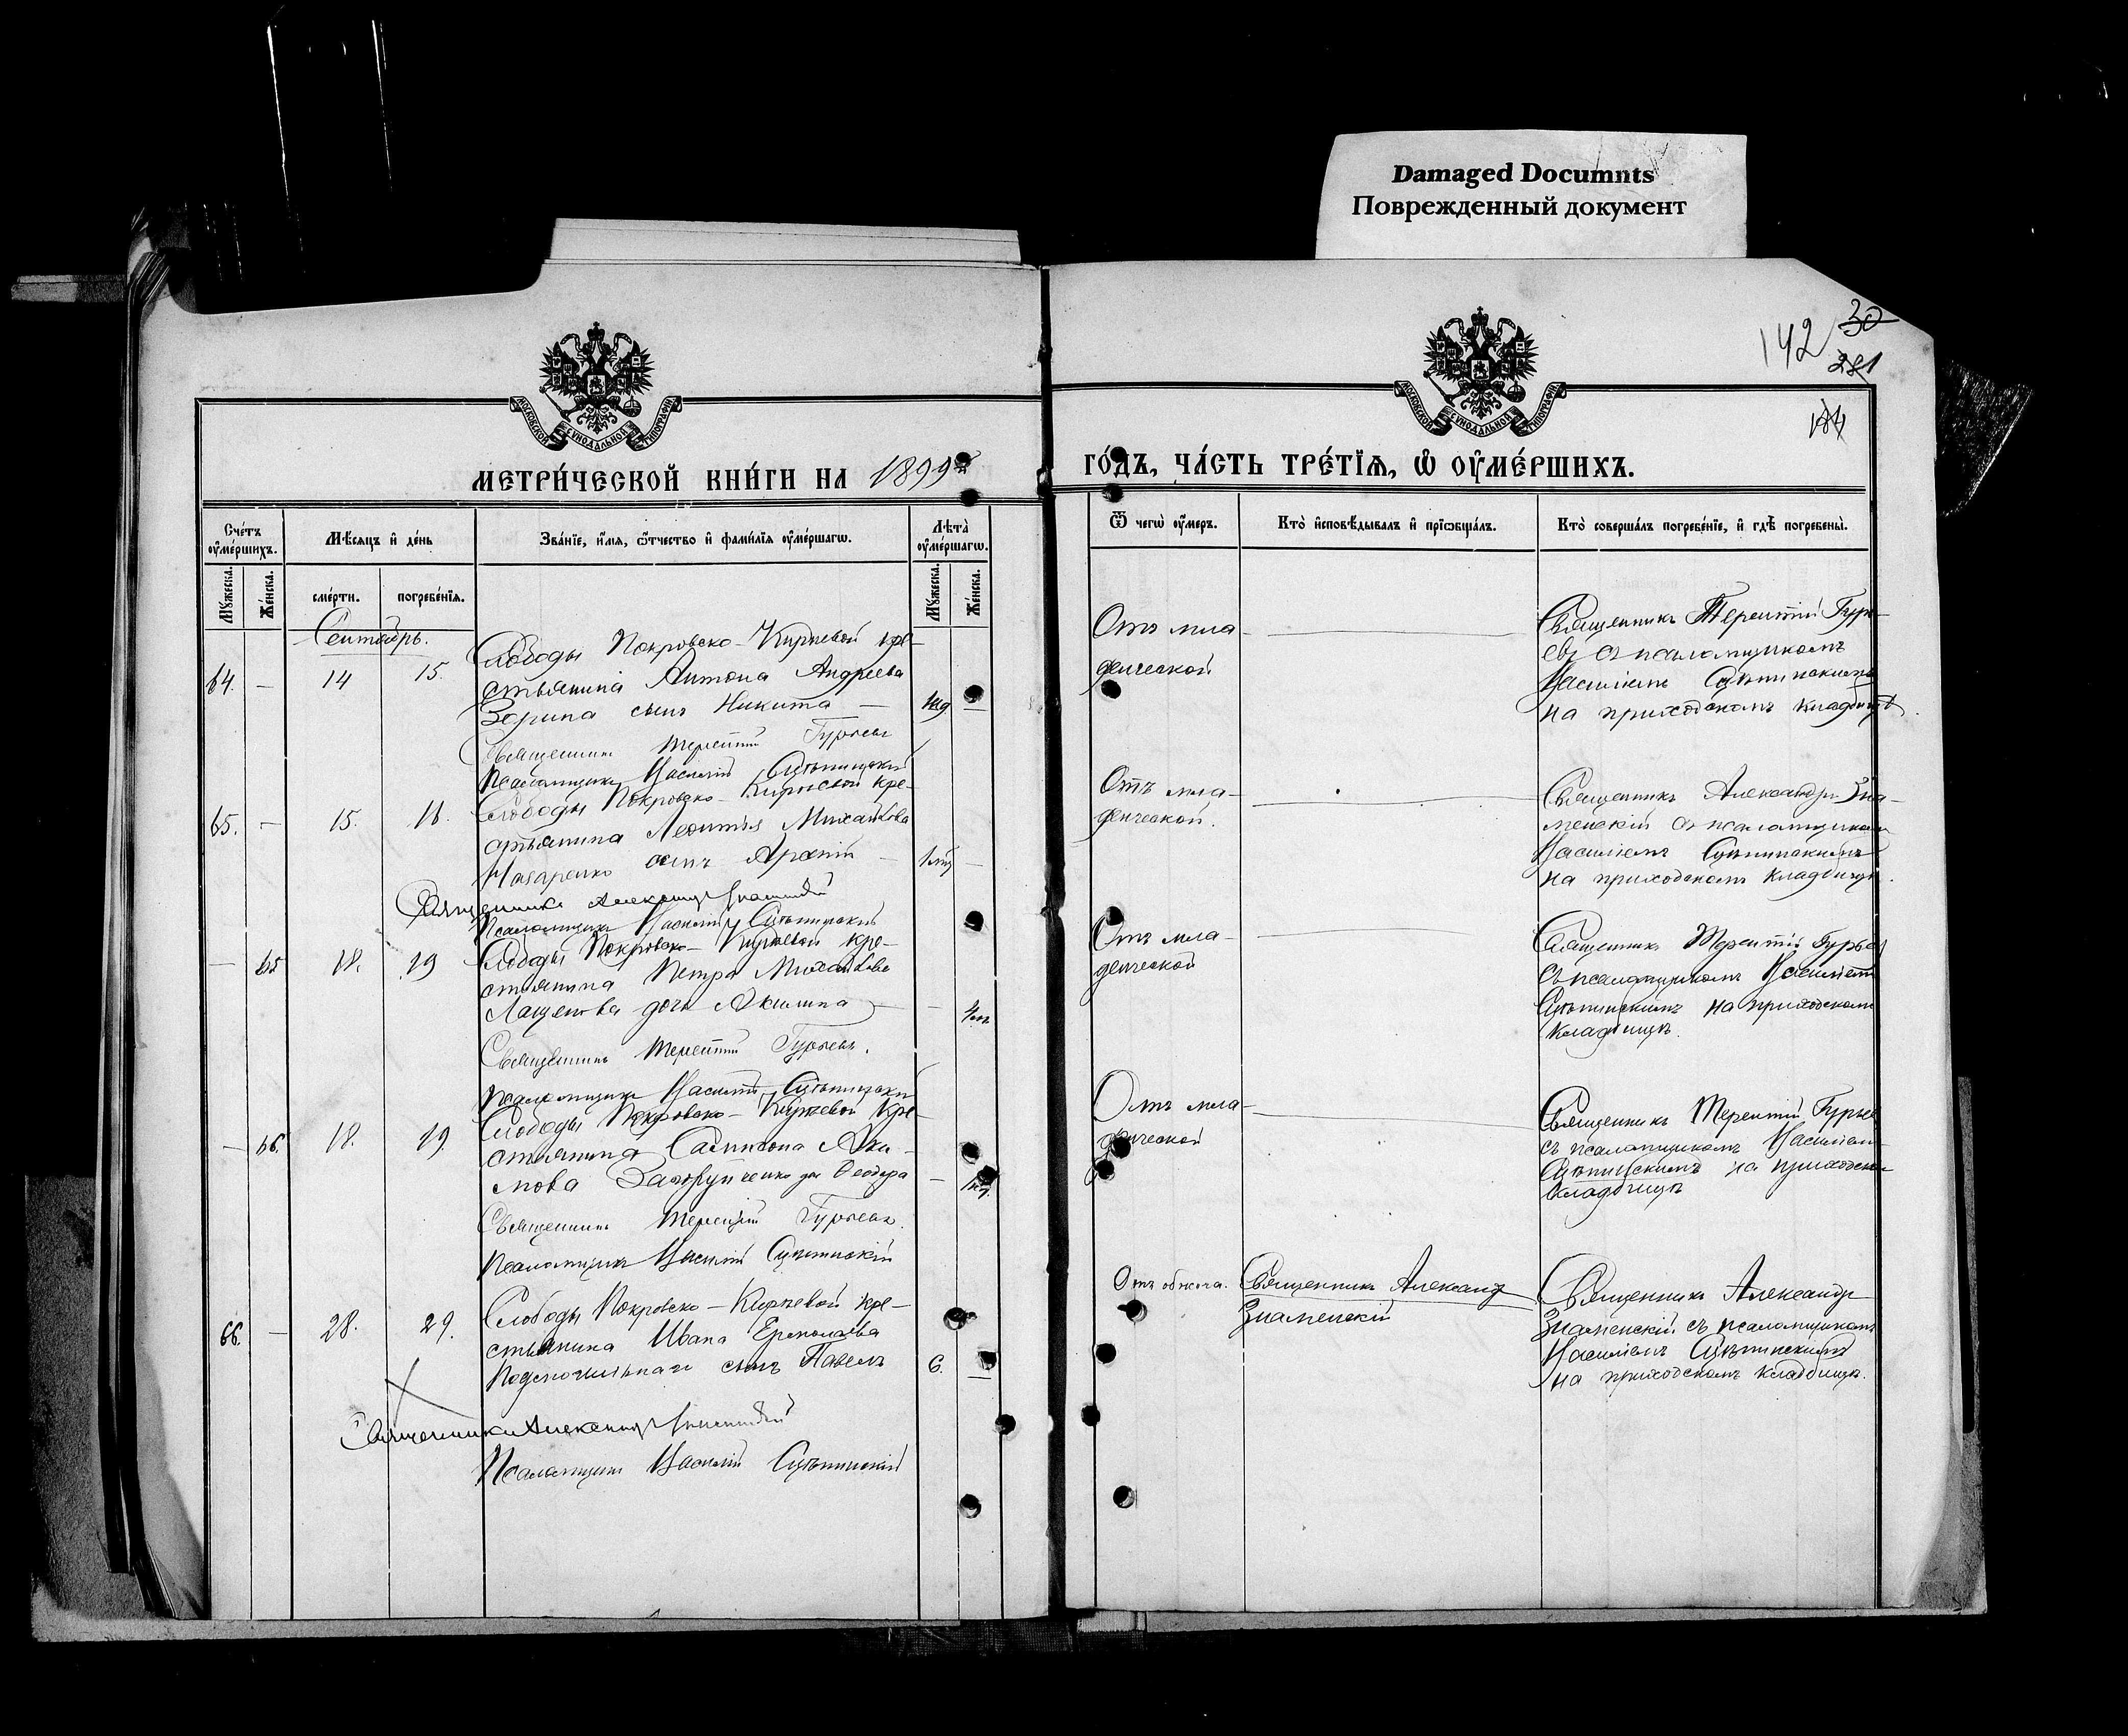 Damaged Documnts
Поврежденный документ
142 30
281
184
МОСКОВСКОЙ СѴНОДАЛЬНОЙ ТИПОГРАФІИ
МОСКОВСКОЙ СѴНОДАЛЬНОЙ ТИПОГРАФІИ
МЕТРИ́ЧЕСКОЙ КНИ́ГИ НА 1899й
ГО́ДЪ, ЧА́СТЬ ТРЕ́ТІѦ, Ѡ҆ ОУ҆МЕ́РШИХЪ.
Сче́тъ оу҆ме́ршихъ.
Мѣ́сѧцъ и҆ де́нь
Зва́нїе, и҆́мѧ, ѻ҆́тчество и҆ фами́лїѧ оу҆ме́ршагѡ.
Лѣта̀ оу҆ме́ршагѡ.
Мꙋ́жеска.
Же́нска.
сме́рти.
погребе́нїѧ.
Мꙋ́жеска.
Же́нска.
Ѿ чегѡ̀ оу҆́меръ.
Кто̀ и҆сповѣ́дывалъ и҆ прїѻбща́лъ.
Кто̀ соверша́лъ погребе́нїе, и҆ гдѣ̀ погребены̀.
Сентябрь.
64. — 14 15.
Слободы Покровско-Киреевой кре-
стьянина Антона Андреева
Зорина сынъ Никита —
Священникъ Терентій Гурьевъ
Псаломщикъ Василій Сцепинскій
Отъ мла-
денческой
Священникъ Терентій Гурь-
евъ съ псаломщикомъ
Василіемъ Сцепинскимъ
на приходскомъ кладбищѣ
65. — 15. 16.
Слободы Покровско-Киреевой кре-
стьянина Леонтья Михайлова
Назаренко сынъ —
Священникъ Александръ Знаменскій
Псаломщикъ Василій Сцепинскій
Отъ мла-
денческой.
Священникъ Александръ Зна-
менскій съ псаломщикомъ
Василіемъ Сцепинскимъ
на приходскомъ кладбищѣ.
— 65 18. 19
Слободы Покровско-Киреевой кре-
стьянина Петра Михайлова
Лащенова дочь Акилина —
Священникъ Терентій Гурьевъ.
Псаломщикъ Василій Сцепинскій
Отъ мла-
денческой
Священникъ Терентій Гурьевъ
съ псаломщикомъ Василіемъ
Сцепинскимъ на приходскомъ
кладбищѣ.
— 66. 18. 19.
Слободы Покровско-Киреевой кре-
стьянина Яки-
мова дочь Ѳеодора —
Священникъ Терентій Гурьевъ.
Псаломщикъ Василій Сцепинскій
Отъ мла-
денческой
Священникъ Терентій Гурьев
съ псаломщикомъ Василіем
Сцепинскимъ на приходском
кладбищѣ
66. — 28. 29.
Слободы Покровско-Киреевой кре-
стьянина Ивана Ермолаева
сынъ Павелъ 6. —
Священникъ Александръ Знаменскій
Псаломщикъ Василій Сцепинскій
Отъ обжога.
Священникъ Александр
Знаменскій
Священникъ Александръ
Знаменскій съ псаломщикомъ
Василіемъ Сцепинскимъ
на приходскомъ кладбищѣ.